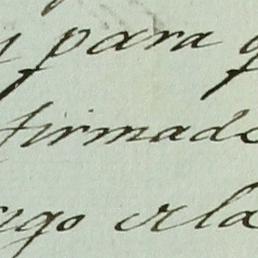 y para q
firmado
ego ela